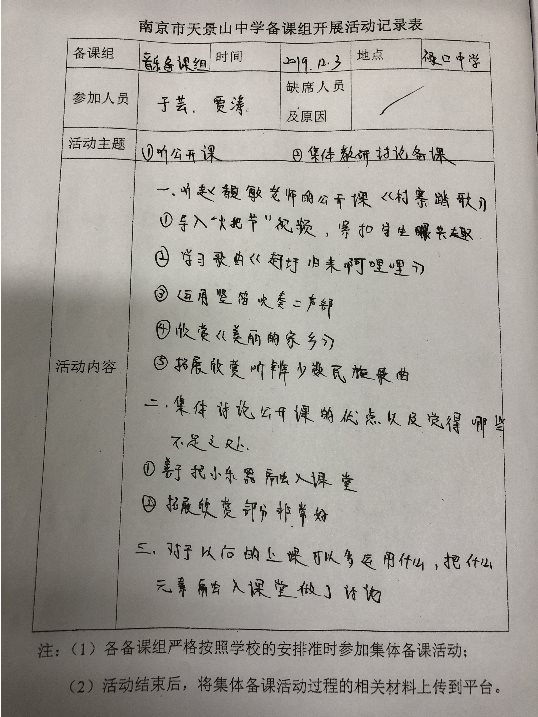 南京市天景山中学备课组开展活动记录表
备课组 音乐备课组 时间 2019.12.3 地点 禄口中学
参加人员 于芸、贾涛 缺席人员及原因
活动主题 ①听公开课 ②集体教研讨论备课
活动内容
一、听赵靓敏老师的公开课《村寨踏歌》
①导入“火把节”视频,紧扣学生兴趣
②学习歌曲《赶圩归来啊哩哩》
③运用竖笛吹奏二声部
④欣赏《美丽的家乡》
⑤拓展欣赏听辨少数民族歌曲
二、集体讨论公开课的优点以及觉得哪些
不足之处
①善于把小乐器融入课堂
②拓展欣赏部分非常好
三、对于以后的上课可以多运用什么,把什么
元素融入课堂做了讨论
注:(1)各备课组严格按照学校的安排准时参加集体备课活动;
(2)活动结束后,将集体备课活动过程的相关材料上传到平台。